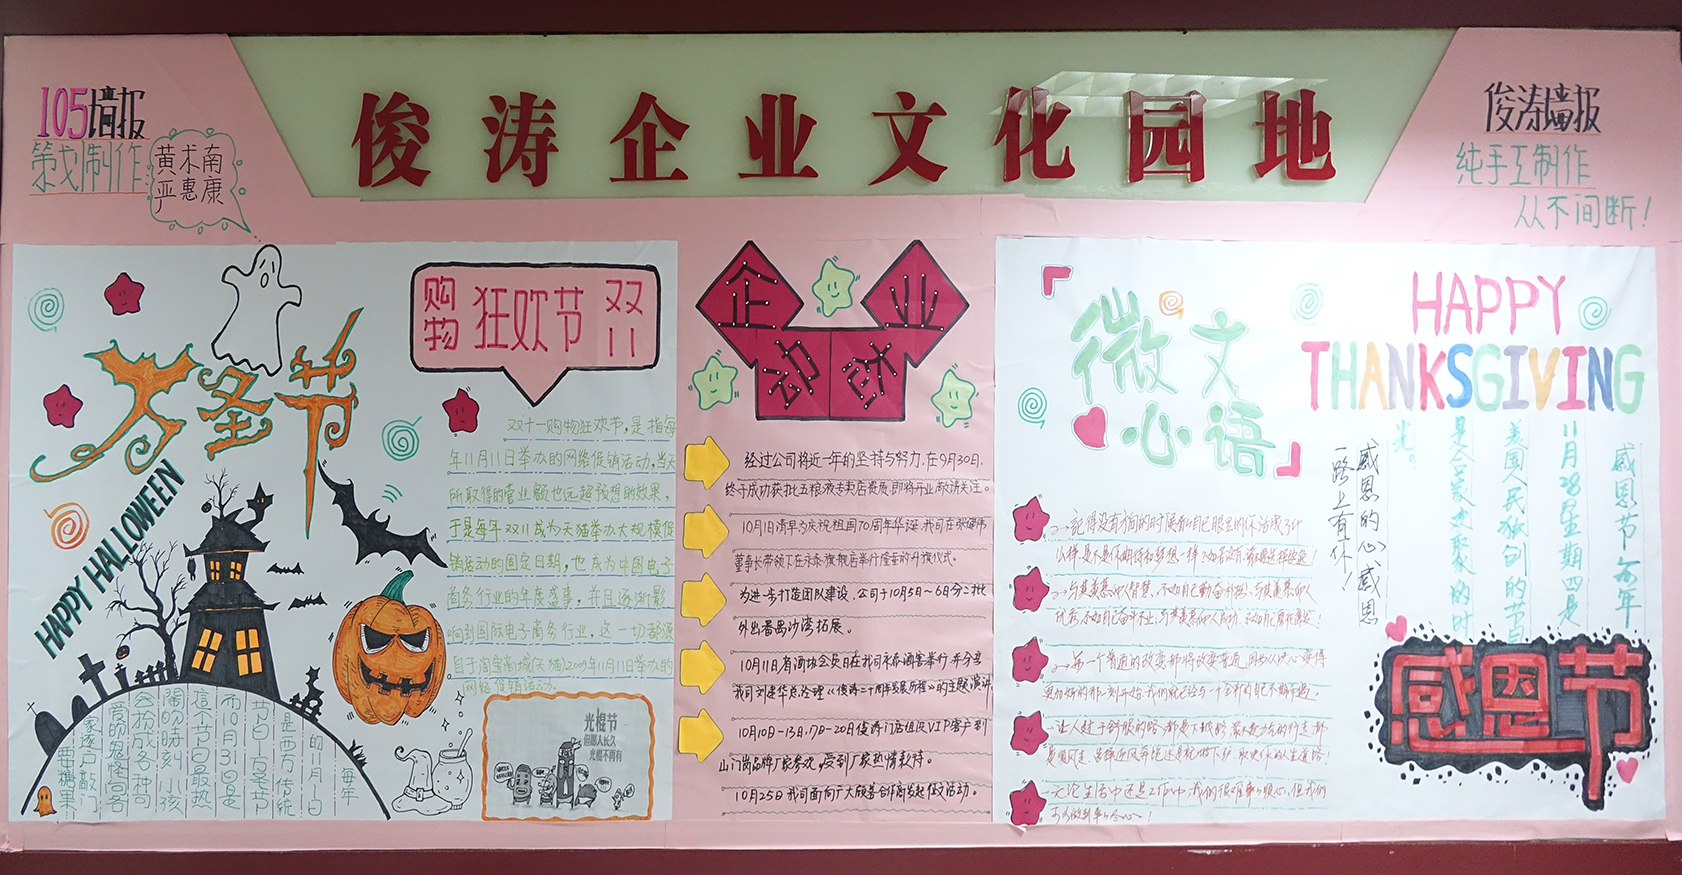 俊涛企业文化园地
105墙报
策划制作
黄术南
严惠康
俊涛墙报
纯手工制作
从不间断！
万圣节
HAPPY HALLOWEEN
每年
的11月1日
是西方传统
节日-万圣节
而10月31日是
這个节日最热
鬧的時刻 小孩
会扮成各种可
爱的鬼怪向各
家逐户敲门
要糖果
购物狂欢节双11
双十一购物狂欢节，是指每
年11月11日举办的网络促销活动，当天
所取得的营业额也远超预想的效果，
于是每年双11成为天猫举办大规模促
销活动的固定日期，也成为中国电子
商务行业的年度盛事，并且逐渐影
响到国际电子商务行业，这一切都源
自于淘宝商城(天猫)2009年11月11日举办的
网络促销活动。
光棍节
但愿人长久
光棍不再有
企业
动态
经过公司将近一年的坚持与努力，在9月30日，
终于成功获批五粮液专卖店资质，即将开业敬请关注。
10月1日清早为庆祝祖国70周年华诞，我司在张
董事长带领下在永泰旗舰店举行隆重的升旗仪式。
为进一步打造团队建设，公司于10月5日~6日分二批
外出番禺沙湾拓展。
10月11日，省酒协会员日在我司永泰酒窖举行，并分享
我司刘建华总经理《俊涛二十周年发展历程》的主题演讲
10月10日-13日，17日-20日俊涛门店组织VIP客户到
山门岗品牌厂家参观，受到厂家热情款待。
10月25日我司面向广大顾客合作商发起促销活动。
微文
心语
记得没有
与其羡慕他人智慧，不如自己勤奋补拙，与其羡慕他人
优秀，不如自己奋斗不止，与其羡慕他人成功，不如自己
每一个普通的改变都将改变普通，因为从决心变得
更加好的那一刻开始，我们就已经与一个全新的自己不期而遇。
让人赶于舒服的路，都是下坡路，
无论生活中还是工作中，我们很难事事顺心，但我们
可以做到事事尽心！
HAPPY
THANKSGIVING
感恩节 每年
11月28星期四是
美国人民独创的节日
是合家欢聚的时
光。
感恩的心，感恩
一路上有你！
感恩节